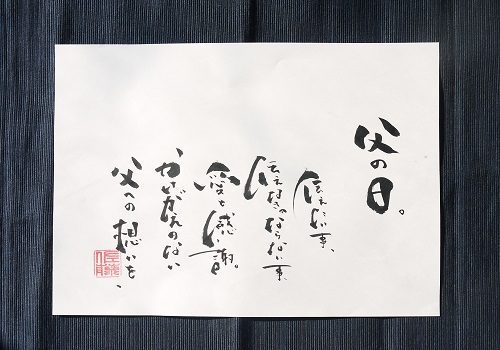 父の日。
伝えたい事、
伝えなきゃならない事、
愛も感謝。
かけがえのない
父への想いを、